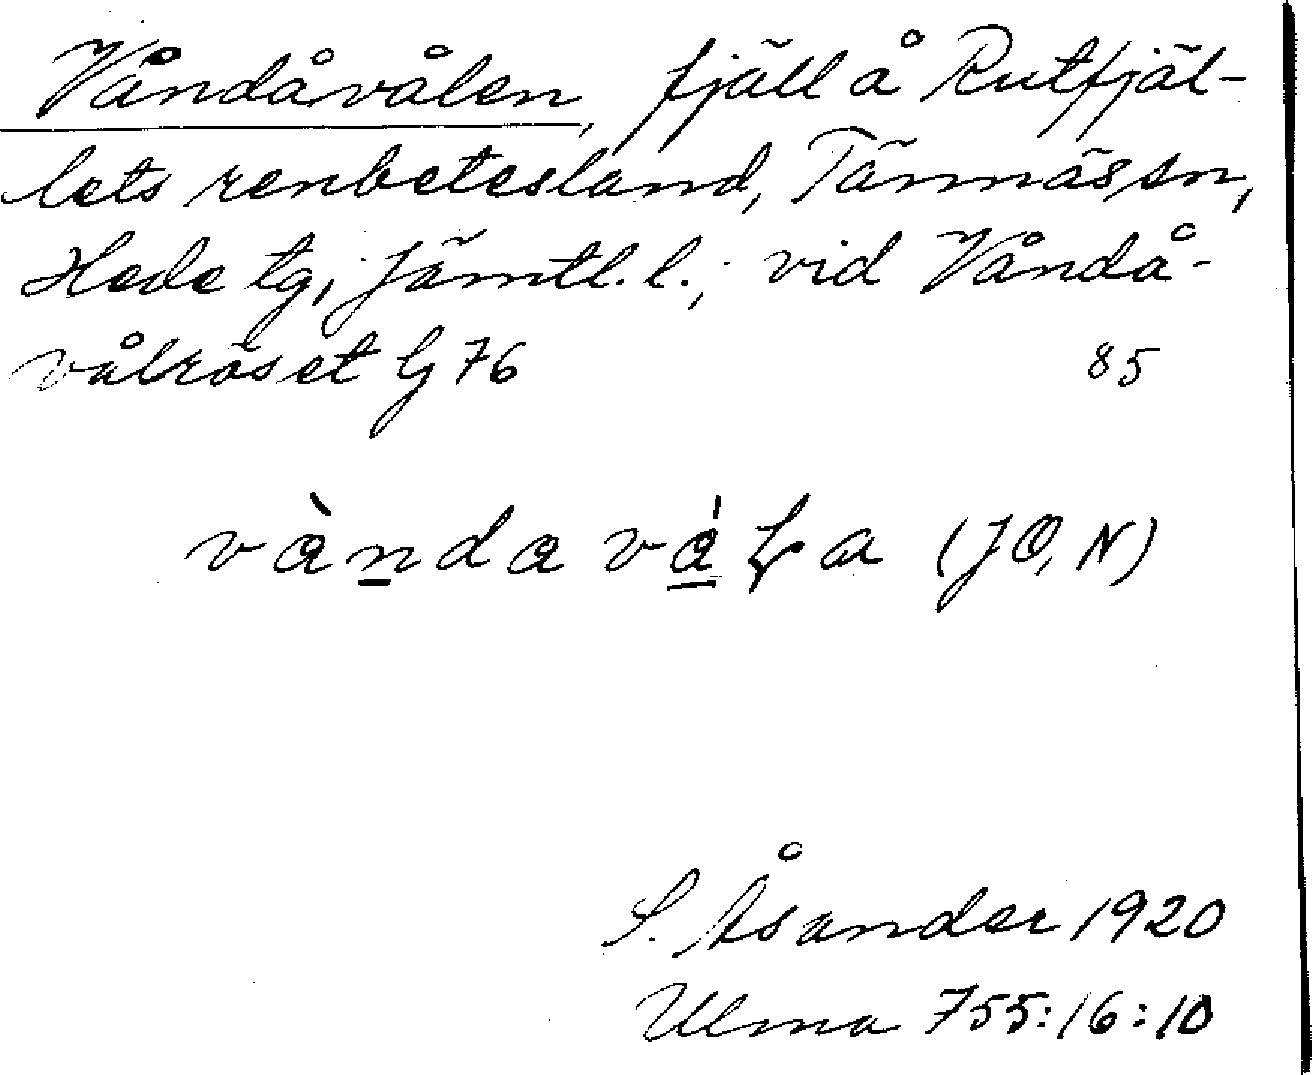 Våndåvålen, fjäll å Rutfjäl-
lets renbetesland, Tännäs sn,
Hede tg, Jämtl. l.; vid Våndå-
vålröset G 76 85
vànda vála (JO, N)
S. Åsander 1920
Ulma 755:16:10